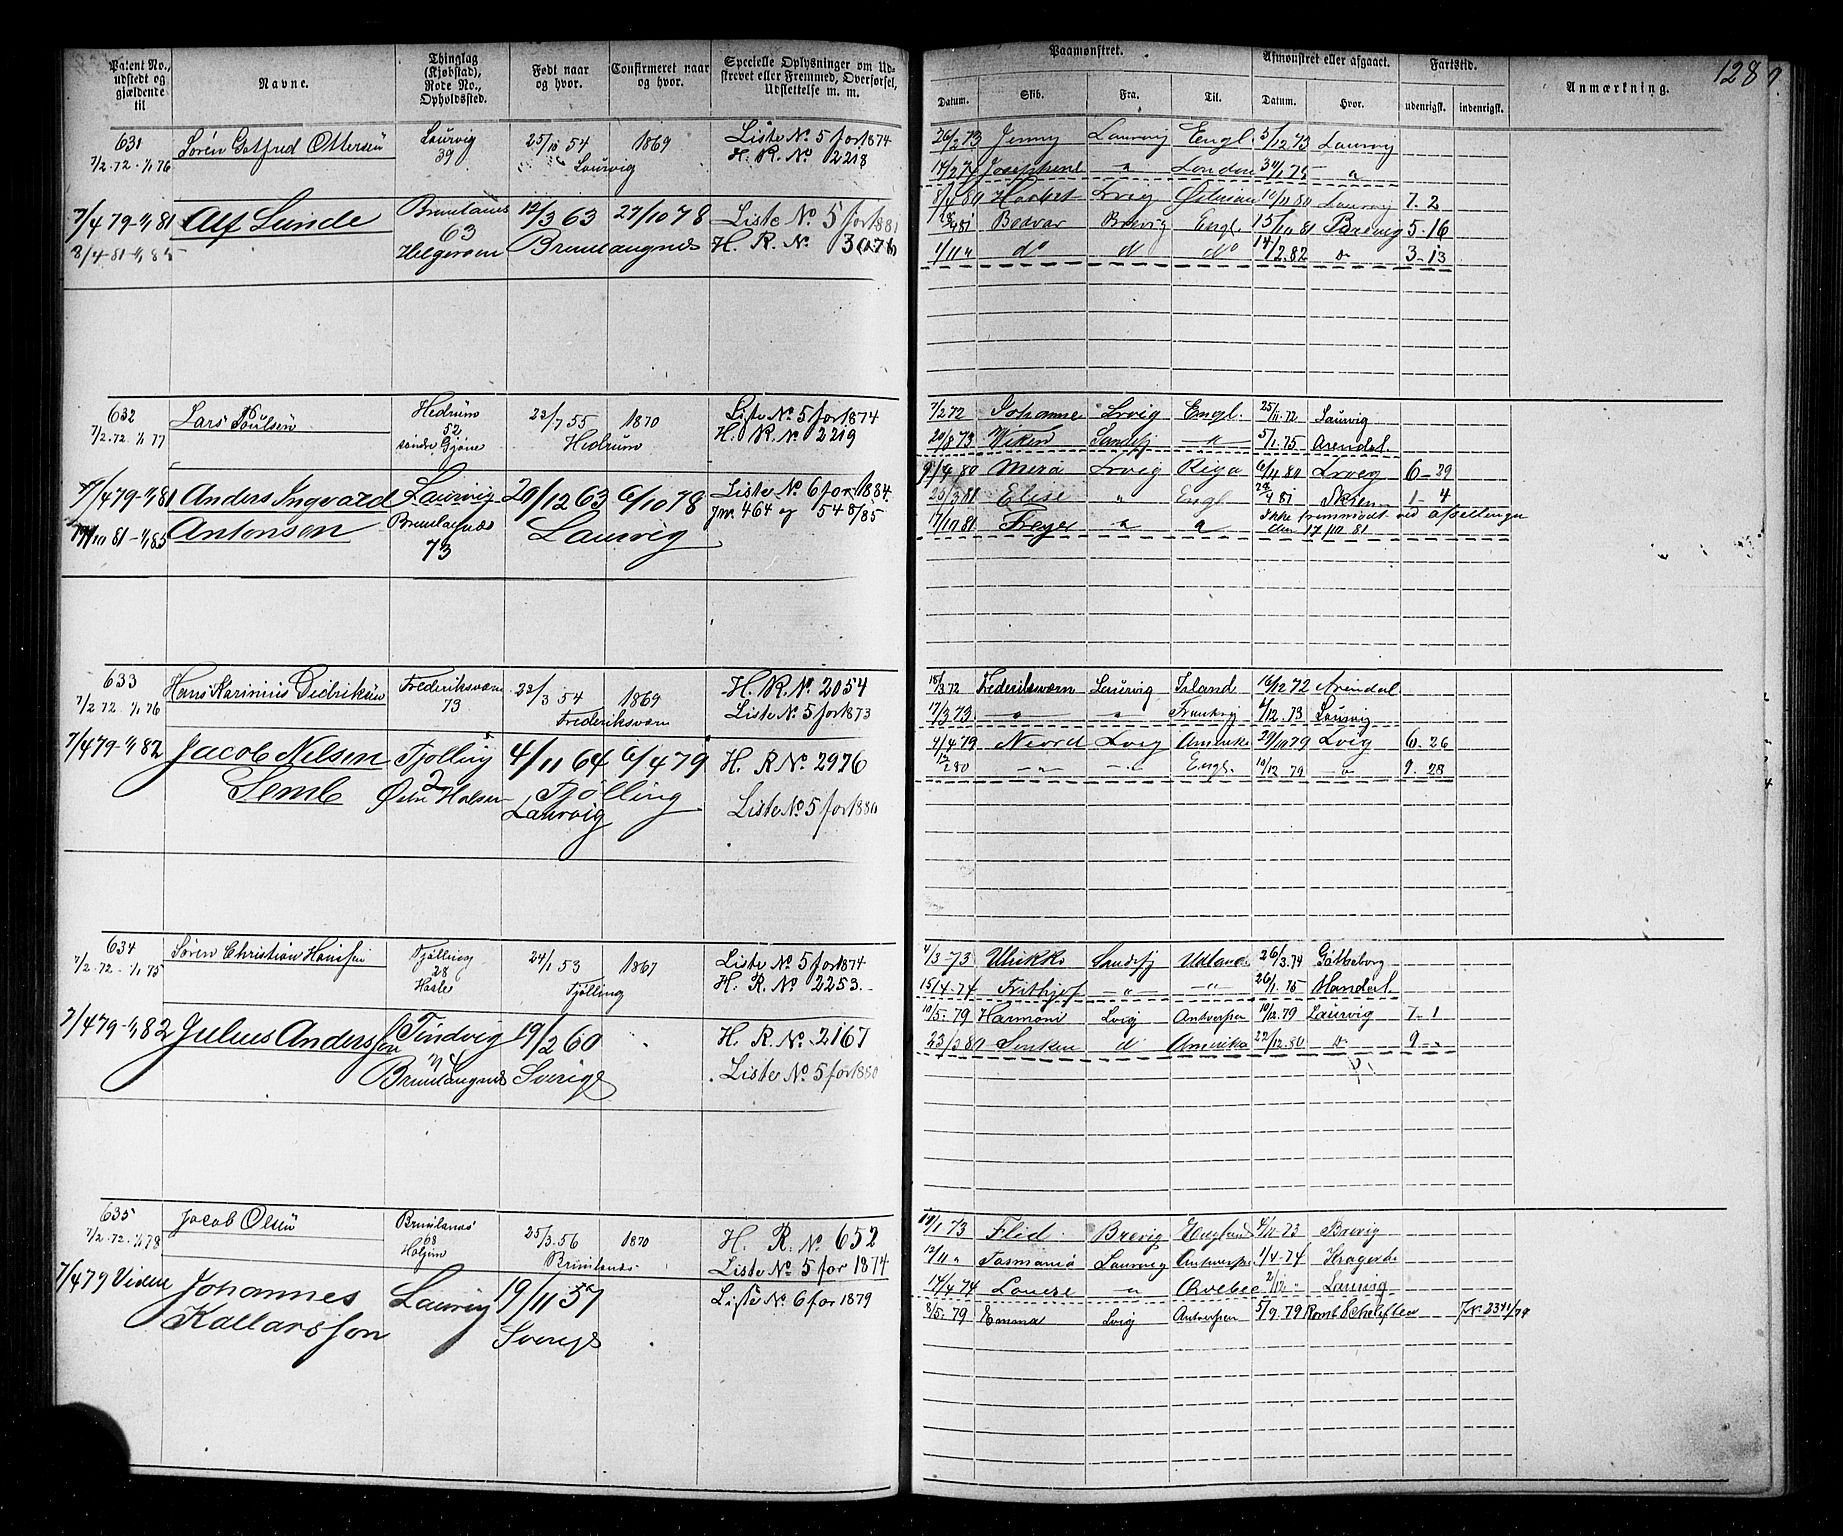 128
Patent No., udstedt og gjældende til
Navne.
Thinglag (Kjøbstad), Rode No., Opholdssted.
Født naar og hvor.
Confirmeret naar og hvor.
Specielle Oplysninger om Udskrevet eller Fremmed, Overførsel, Udslettelse m. m.
Paamønstret.
Afmønstret eller afgaaet.
Fartstid.
Anmærkning.
Datum. Skib. Fra. Til. Datum. Hvor. udenrigsk. indenrigsk.
631
7/2 72 - 1/1 76
Søren Gotfred Ottersen
Laurvig
39
25/10 54
Laurvig
1869
Liste No 5 for 1874
H. R. No 2218
26/2 73 Jenny Laurvig Engl. 5/12 73 Laurvig
14/2 74 Josephine " London 1/75 "
7/4 79 - 1/1 81
8/4 81 - 1/1 85
Alf Lunde
Brunlanes
63
Helgeroen
12/3 63
27/10 78
Brunlangnes
Liste No 5 for 1881
H. R. No 3076
8/4 80 Lvig 80 Laurvig 7. 2
81 Bodvar Brevig Engl. 15/10 81 Brevig 5-16
1/11 " do d do 14/2 82 do 3-13
632
7/2 72 - 1/1 77
Lars Poulsen
Hedrum
52
søndre Gjøne
22/7 55
1870
Hedrum
Liste No 5 for 1874
H. R. No 2219
7/2 72 Johanne Lrvig Engl. 25/11 72 Laurvig
20/8 73 Viken Sandefj " 5/1 75 Arendal.
7/4 79 - 1/1 81
17/10 81 - 1/1 85
Anders Ingvard
Antonsen
Laurvig
Brunlagnæs
73
20/12 63
6/10 78
Laurvig
Liste No 6 for 1884.
Jm 464 og 548/85
9/4 80 Mira Lrvig Riga 6/11 80 Lrvig 6-29
25/3 81 Elise " Engl 81 Skien 1-4
17/10 81 Freyer " " Ikke fremmødt ved afseilingen
den 17/10 81
633
7/2 72 - 1/1 76
Hans Karinius Didriksen
Frederiksværn
73
22/3 54
1869
Frederiksværn
H. R. No 2054
Liste No 5 for 1873
18/3 72 Frederiksværn Laurvig Island 16/12 72 Arendal
17/3 73 " " Frankrig 6/12 73 Laurvig
7/4 79 - 1/1 82
Jacob Nilsen
Semb
Tjølling
2
Østre Halsen
4/11 64
6/4 79
Tjølling
Laurvig
H. R. No 2976
Liste No 5 for 1880
4/4 79 Neord Lvig Amerika 20/10 79 Lvig 6. 26
80 " " Engl. 10/12 79 " 9. 28
634
7/2 72 - 1/1 75
Søren Christian Hansen
Tjølling
28
Hasle
24/1 53
1867
Tjølling
Liste No 5 for 1874
H. R. No 2253
4/3 73 Ulrikke Sandefj Udland 26/3 74 Gøtheborg
15/4 74 Frithjof " " 26/1 75 Mandal.
7/4 79 - 1/1 82
Julius Anderssen
Tindvig
Brunlangnes
19/2 60
Sverige
H. R. No 2167
Liste No 5 for 1880
10/5 79 Harmoni Lvig Antverpen 10/12 79 Laurvig 7. 1
23/3 80 d Amerika 22/12 80 do 9 -
635
7/2 72 - 1/1 78
Jacob Olsen
Brunlanes
68
25/3 56
1870
Brunlanes
H. R. No 652
Liste No 5 for 1874
19/1 73 Flid Brevig England 73 Brevig
12/11 " Tasmania Laurvig Antverpen 1/4 74 Kragerø
14/4 74 Lovise " " Laurvig
7/4 79
Johannes
Kallarsson
Laurvig
19/11 57
Sverige
Liste No 6 for 1879
8/5 79 Emma Lvig Antverpen 5/9 79 Jr. 2341/79